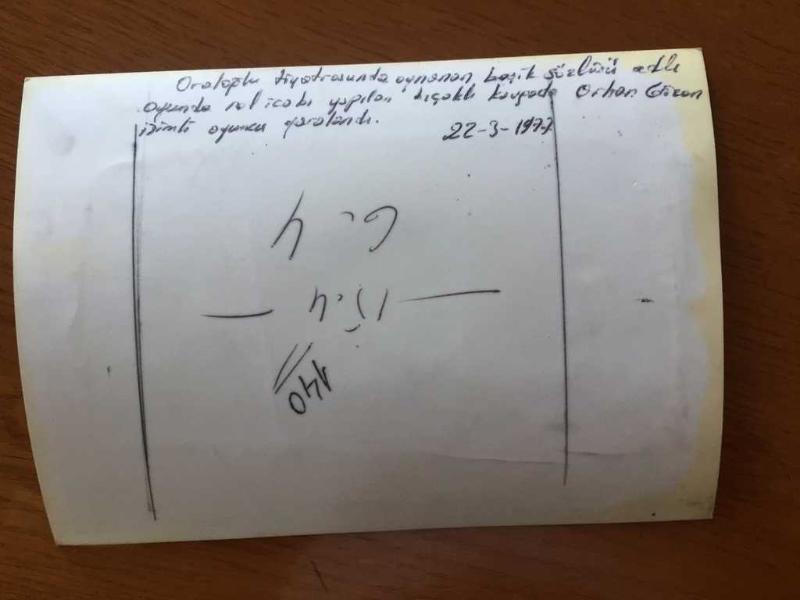 Oraloğlu tiyatrosunda oynanan beşik sözlüsü adlı
oyunda rol icabı yapılan bıçaklı kavgada Orhan
isimli oyuncu yaralandı.
22-3-1977
140